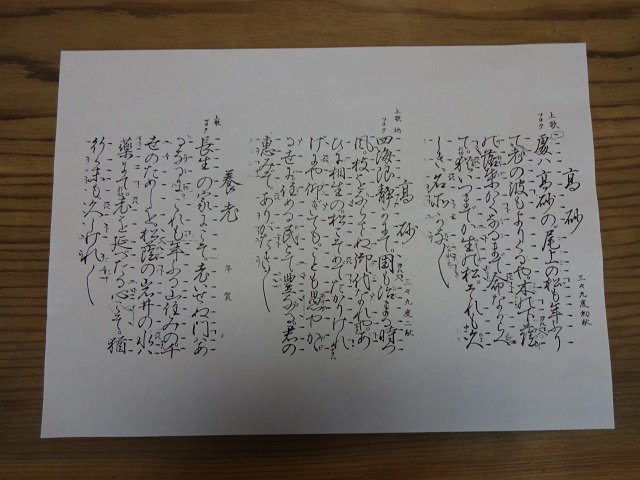 高砂
三々九度初献
上歌
ツヨク
處ハ高砂の尾上の松も年ふり
て老の波もよりくるや木の下蔭
の落葉かくなるまで命ながらへ
て猶いつまでか生の松それも久
しき名所かな
高砂
三々九度二献
上歌 地
ツヨク
四海波静かにて国も治まる時つ
風枝をならさぬ御代なれやあ
ひに相生の松こそめでたかりけれ
げにや仰ぎてもことも愚やかゝ
る世に住める民とて豊かなる君の
恵みぞありがたき
養老
年賀
上歌
ツヨク
長生の家にこそ老せぬ門ハあ
るなるにこれも年ふる山住みの千
世のためしを松蔭の岩井の水ハ
薬にて老を延べたる心こそ猶
行く末も久しけれ